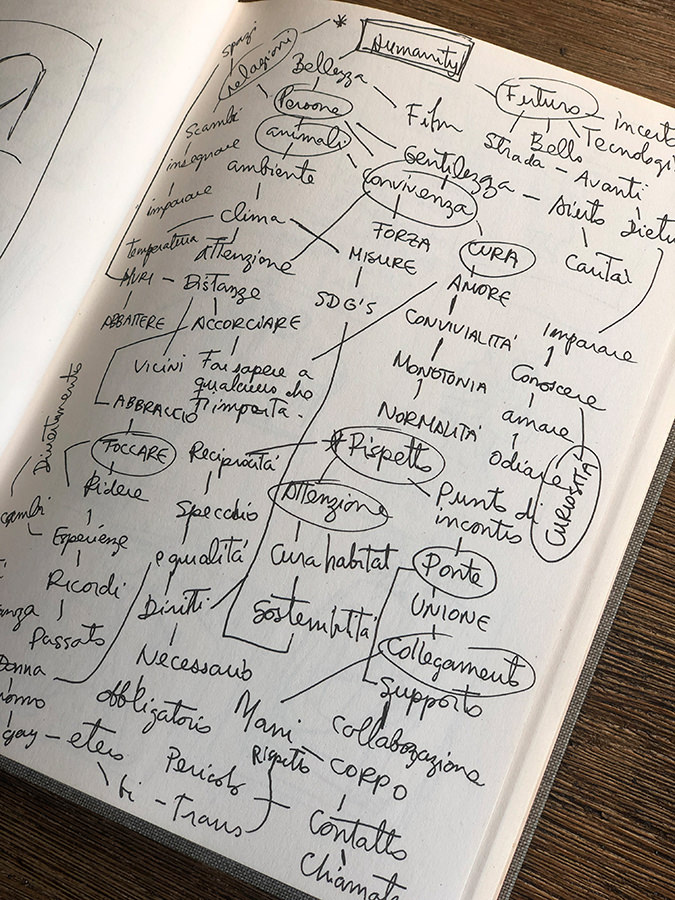 spazi
*
Humanity
relazioni
Bellezza
Futuro
incerto
Persone
Film
Strada
Bello
Tecnologi
Scambi
animali
Gentilezza
Avanti
insegnare
ambiente
Convivenza
Aiuto
Dietro
imparare
clima
FORZA
CURA
temperatura
Attenzione
MISURE
AMORE
MURI - Distanze
SDG'S
ABBATTERE
ACCORCIARE
CONVIVIALITA'
imparare
VICINI
Far sapere a
qualcuno che
t'importa.
MONOTONIA
Conoscere
Divertimento
ABBRACCIO
NORMALITA'
amare
TOCCARE
Reciprocità
* Rispetto
Odiare
CURIOSITÀ
Ridere
Specchio
Attenzione
Punto di
incontro
cambi
Esperienze
equalità
Cura habitat
Ponte
Ricordi
Diritti
Sostenibilità
UNIONE
anza
Passato
Necessario
Collegamento
Donna
obbligatorio
Mani
supporto
uomo
collaborazione
gay - etero
Pericolo
Rispetto
CORPO
bi - Trans
Contatto
Chiamat